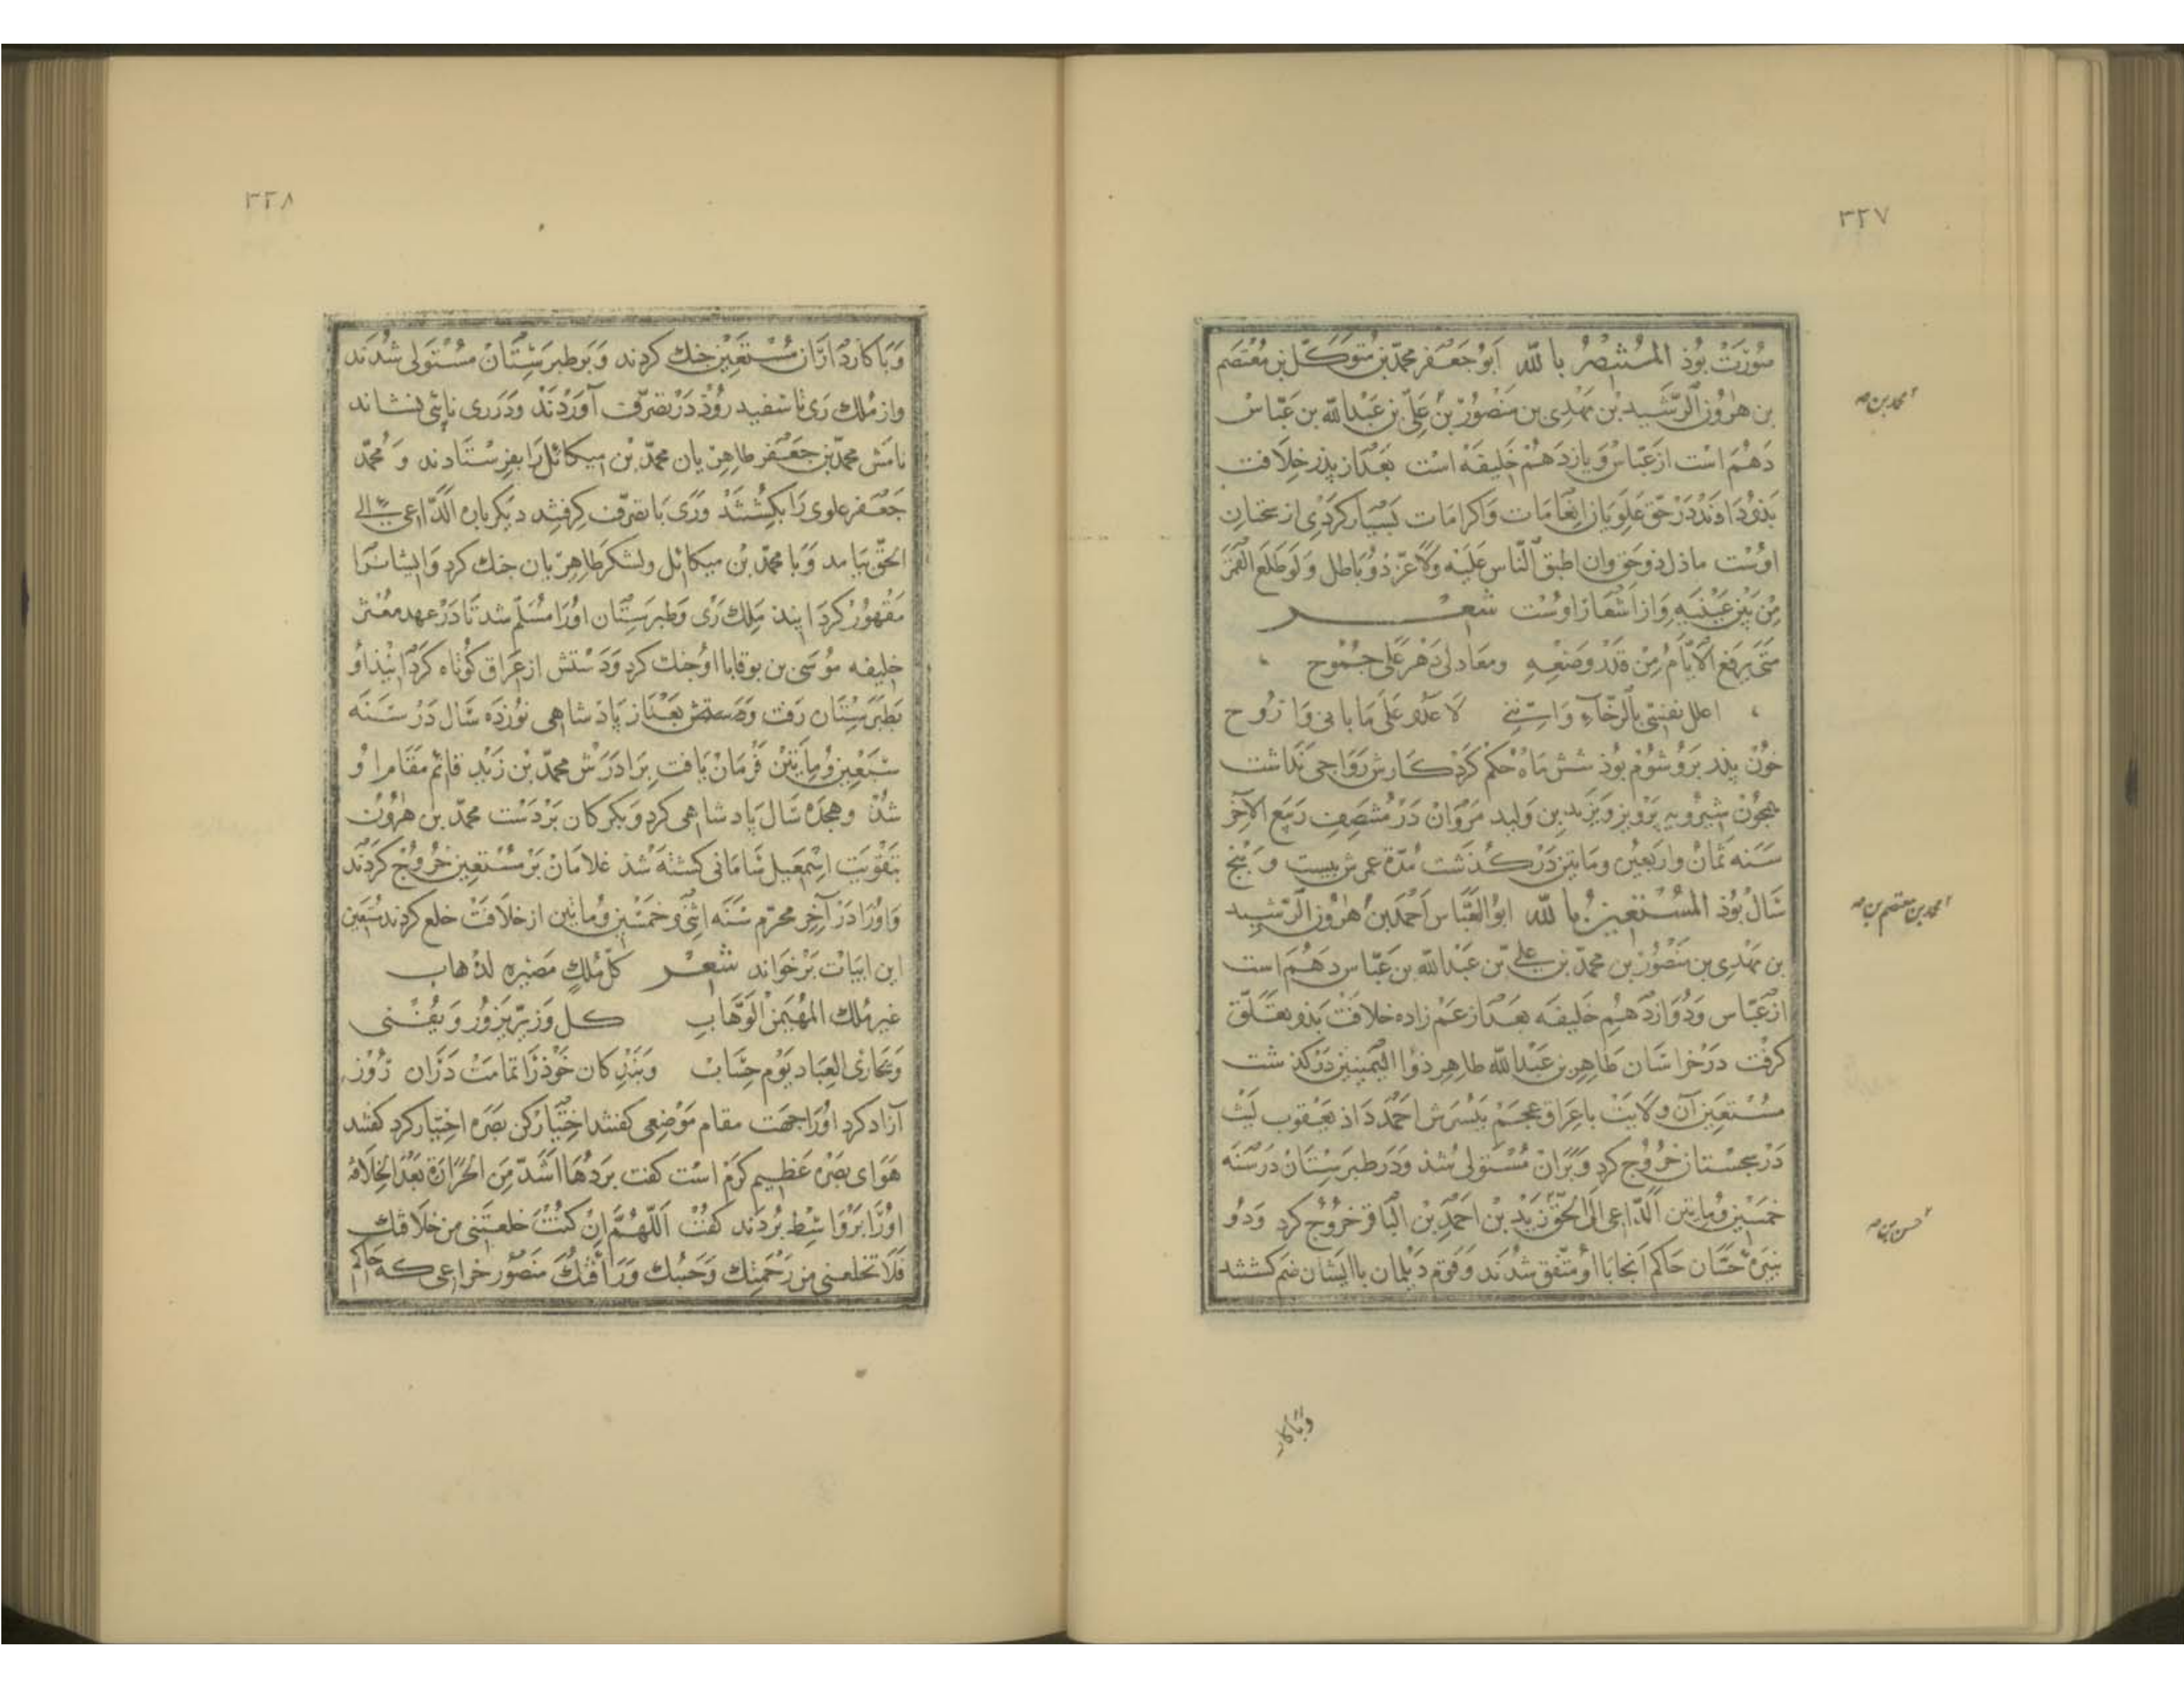 ٣٣٧
صورت بوذ المستنصر بالله ابوجعفر محمّد بن متوكّل بن معتصم
بن هرون الرّشيد بن مهدى بن منصور بن علىّ بن عبدالله بن عبّاس
دهم است از عبّاس و يازدهم خليفه است بعد از پذر خلافت
بذو داذند در حقّ علويان انعامات و اكرامات بسيار كردى از سخنان
اوست ماذل ذوحق وان اطبق النّاس عليه ولا عزّ ذو باطل ولو طلع القمر
من بين عينيه و از اشعار اوست شعر
متى يرفع الايّام من قد وضعه ومعاد لى دهر على جموح
اعلل نفسى بالرّخاء واننى لاغدو على ما بانى و اروح
خون پذر برو شوم بوذ شش ماه حكم كرد كارش رواجى نداشت
همچون شيرويه پرويز و يزيد بن وليد مروان در منتصف ربيع الآخر
سنه ثمان واربعين ومايتين در كذشت مدّة عمرش بيست و پنج
سال بوذ المستعين بالله ابوالعبّاس احمد بن هرون الرّشيد
بن مهدى بن منصور بن محمّد بن على بن عبدالله بن عبّاس دهم است
از عبّاس و دوازدهم خليفه بعد از عم زاده خلافت بذو تعلّق
كرفت در خراسان طاهر بن عبدالله طاهر ذوا اليمينين در كذشت
مستعين آن ولايت با عراق عجم بپسرش احمد داذ يعقوب ليث
در سجستان خروج كرد و بران مستولى شذ و در طبرستان در سنه
خمسين ومايتين الدّاعى الى الحقّ زيد بن احمد بن الباقر خروج كرد و دو
نبيره حسّان حاكم آنجا با او متّفق شدند و قوم ديلمان با ايشان ضم كشتند
محمد بن صح
احمد بن معتصم بن صح
حسن بن صح
و با كار
٣٣٨
و با كارداران مستعين جنك كردند و بر طبرستان مستولى شدند
و از ملك رى تا سفيد روذ در تصرّف آوردند و در رى نايبى بنشاند
نامش محمّد بن جعفر طاهريان محمّد بن ميكائل را بفرستادند و محمّد
جعفر علوى را بكشتند و رى با تصرّف كرفتند ديكر باره الدّاعى الى
الحقّ بيامد و با محمّد بن ميكائل و لشكر طاهريان جنك كرد و ايشانرا
مقهور كردانيد ملك رى و طبرستان اورا مسلّم شد تا در عهد معتز
خليفه موسى بن بوقا با او جنك كرد و دستش از عراق كوتاه كردانيذ او
بطبرستان رفت و بعد از پادشاهى نوزده سال در سنه
سبعين ومايتين فرمان يافت برادرش محمّد بن زيد قائم مقام او
شذ و هجده سال پادشاهى كرد و بكركان بر دست محمّد بن هرون
بتقويت اسمعيل سامانى كشته شذ غلامان بر مستعين خروج كردند
و اورا در آخر محرّم سنه اثنى و خمسين و ماتين از خلافت خلع كردند مستعين
اين ابيات بر خواند شعر كلّ ملك مصيره لذهاب
غير ملك المهيمن الوهّاب كل وزر يزور و يفنى
و يجازى العباد يوم حساب و بندكان خوذرا تمامت دران روز
آزاد كرد اورا جهت مقام موضعى كفتند اختيار كن بصره اختيار كرد كفتند
هواى بصره عظيم كرم است كفت بردها اشدّ من الحرارة بعد الخلافة
اورا بر واسط بردند كفت اللّهمّ ان كنت خلعتنى من خلافتك
فلا تخلعنى من رحمتك و حبّك ورافتك منصور خزاعى كه حاكم